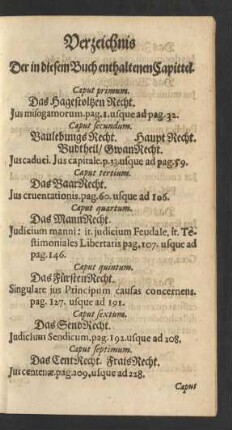 Verzeichnis
Der in diesem Buch enthaltenen Capittel.
Caput primum.
Das Hagestoltzen Recht.
Jus misogamorum. pag. 1. usque ad pag. 32.
Caput secundum.
Baulebungs Recht. Haupt Recht.
Budtheil/ Gwan Recht.
Jus caduci. Jus capitale. p. 33. usque ad pag. 59.
Caput tertium.
Das Baar Recht.
Jus cruentationis. pag. 60. usque ad 106.
Caput quartum.
Das Mann Recht.
Judicium manni: it. judicium Feudale, it. Te-
stimoniales Libertatis pag, 107. usque ad
pag. 146.
Caput quintum.
Das Fürsten Recht.
Singulare jus Principum causas concernens.
pag. 127. usque ad 191.
Caput sextum.
Das Send Recht.
Judicium Sendicum. pag. 192. usque ad 208.
Caput septimum.
Das Cent Recht. Frais Recht.
Jus centenæ. pag. 209. usque ad 228.
Caput